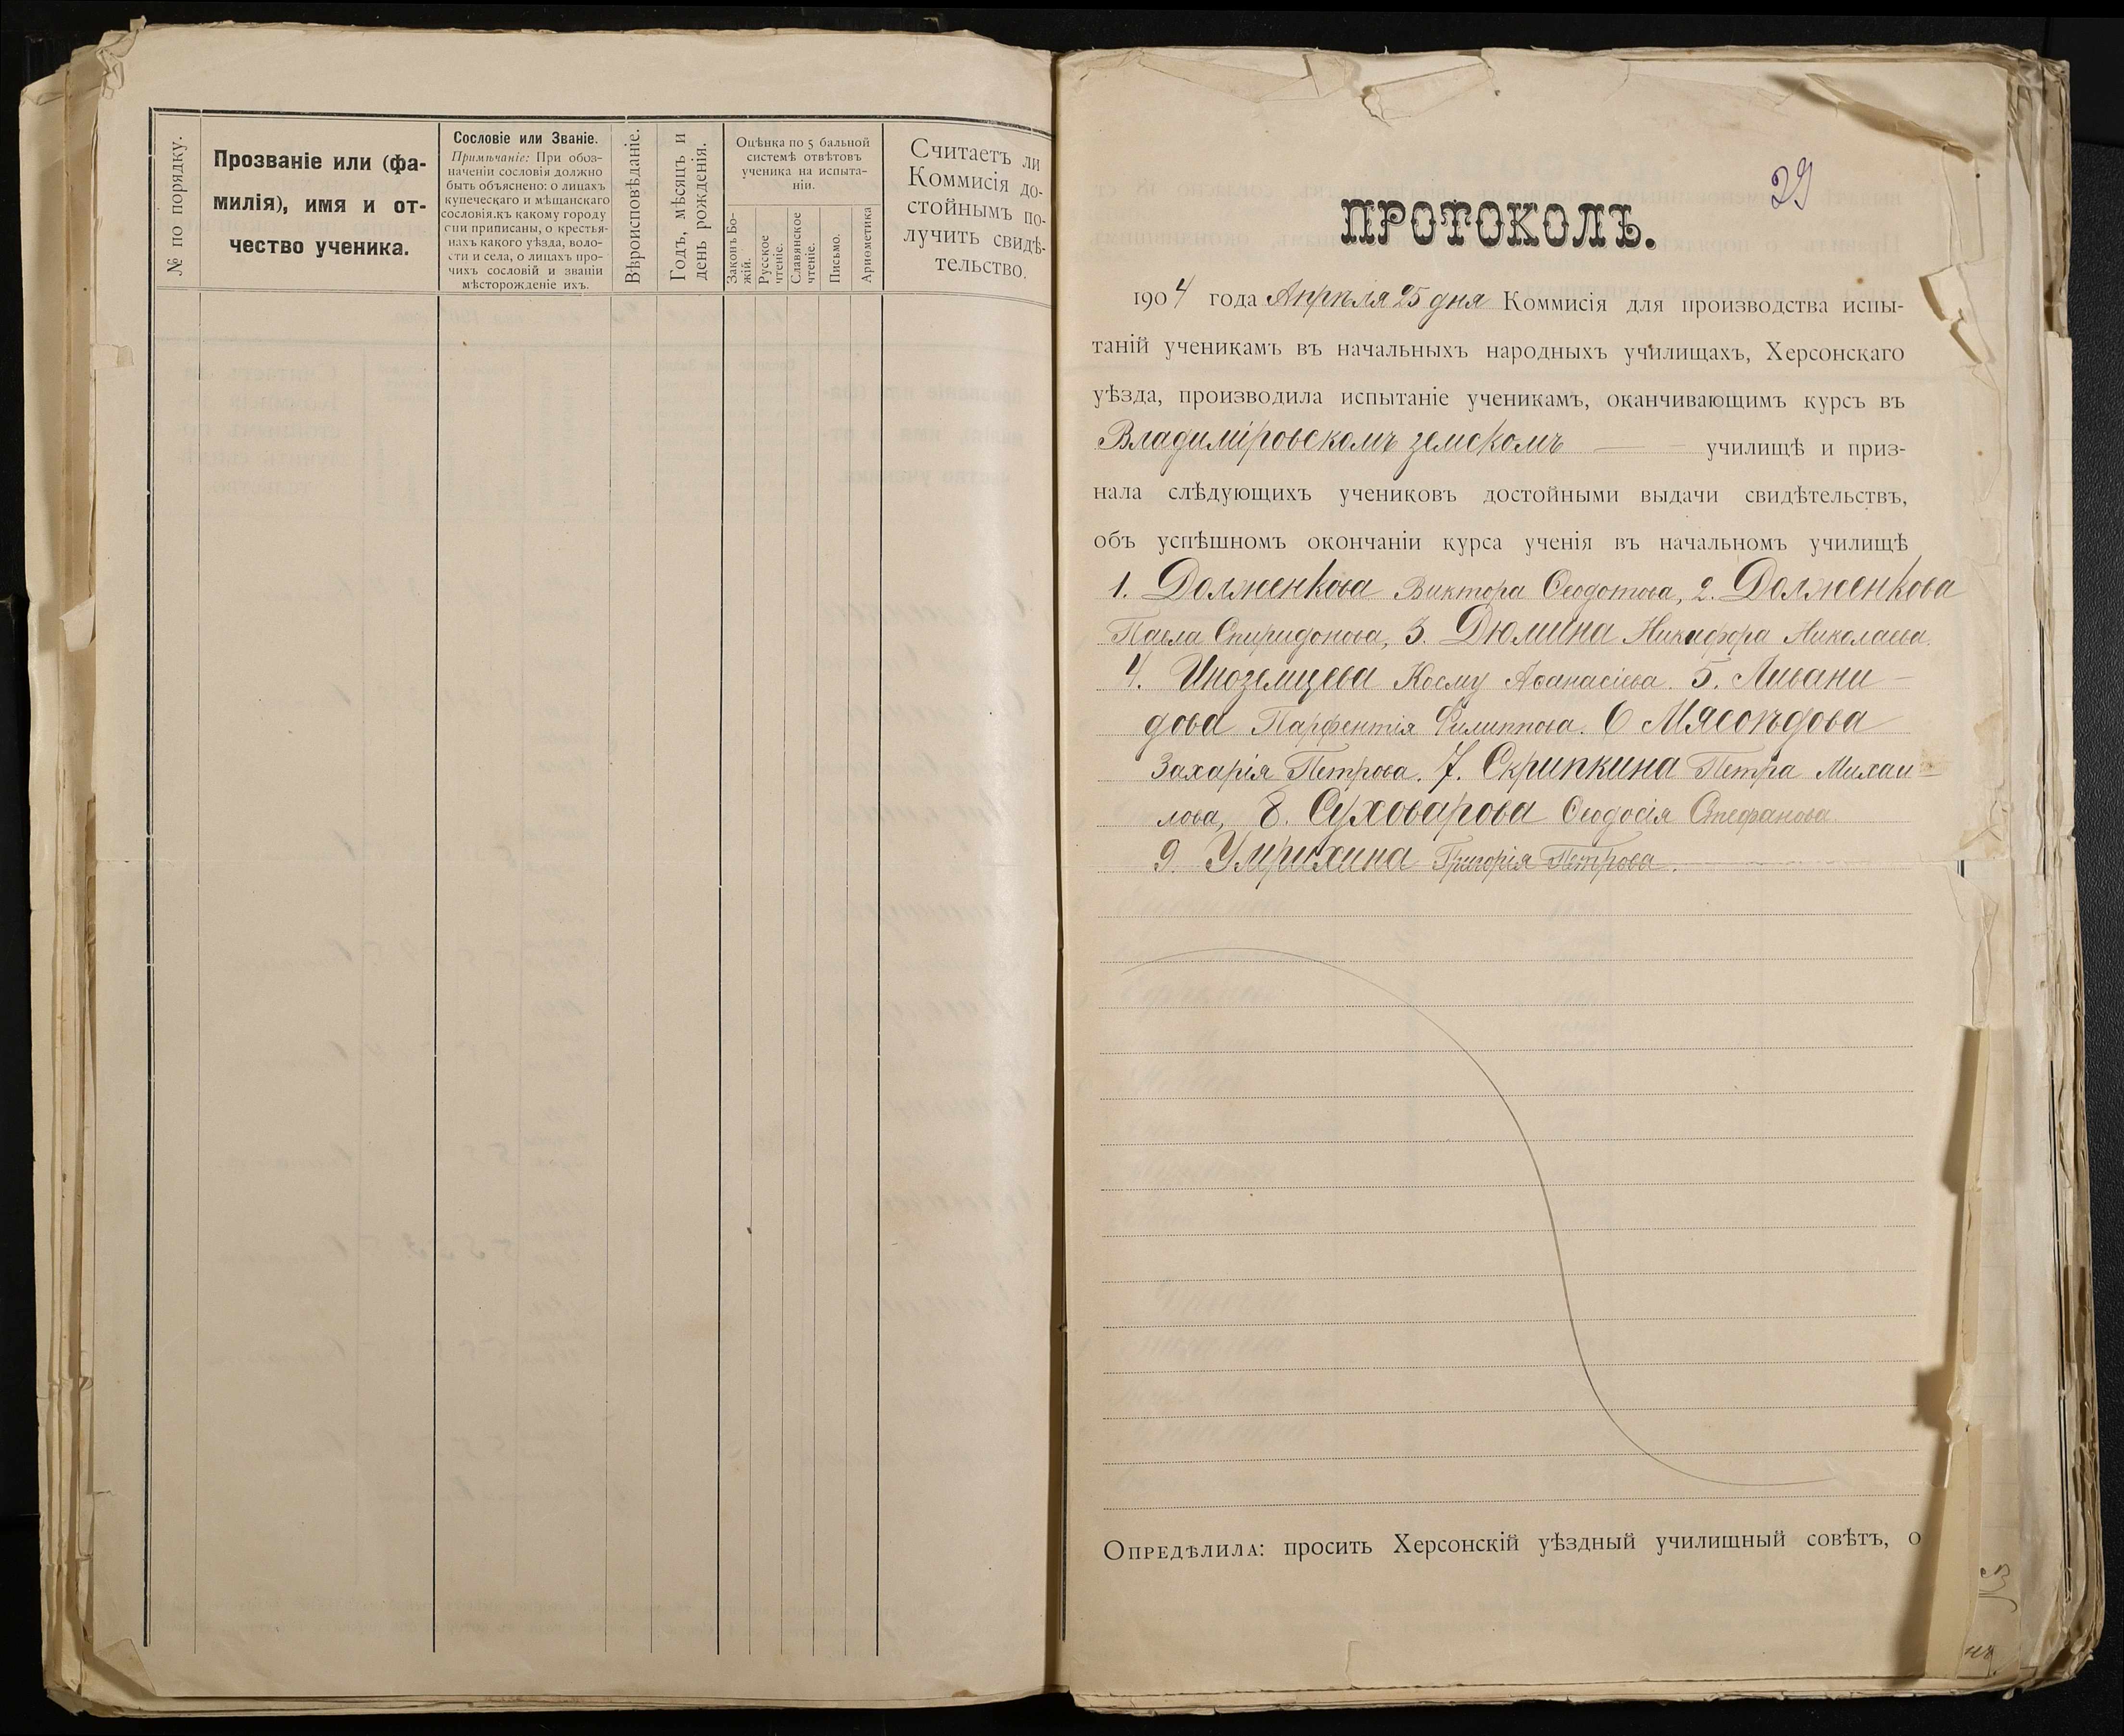 № по порядку.
Прозваніе или (фа-
милія), имя и от-
чество ученика.
Сословіе или Званіе.
Примѣчаніе: При обоз-
наченіи сословія должно
быть объяснено: о лицахъ
купеческаго и мѣщанскаго
сословія.къ какому городу
они приписаны, о крестья-
нахъ какого уѣзда, воло-
сти и села, о лицахъ про-
чихъ сословій и званій
мѣсторожденіе ихъ.
Вѣроисповѣданіе.
Годъ, мѣсяцъ и
день рожденія.
Оцѣнка по 5 бальной
системѣ отвѣтовъ
ученика на испыта-
ніи.
Законъ Бо-
жій.
Русское
чтеніе.
Славянское
чтеніе.
Письмо.
Ариѳметика
Считаетъ ли
Коммисія до-
стойнымъ по-
лучить свидѣ-
тельство.
29
ПРОТОКОЛЪ.
1904 года Апрѣля 25 дня Коммисія для производства испы-
таній ученикамъ въ начальныхъ народныхъ училищахъ, Херсонскаго
уѣзда, производила испытаніе ученикамъ, оканчивающимъ курсъ въ
Владиміровскомъ земскомъ — училищѣ и приз-
нала слѣдующихъ учениковъ достойными выдачи свидѣтельствъ,
объ успѣшномъ окончаніи курса ученія въ начальномъ училищѣ
1. Долженкова Виктора Ѳеодотова, 2. Долженкова
Павла Спиридонова, 3. Дюмина Никифора Николаева.
4. Иноземцева Косму Аѳанасіева. 5. Ливани-
дова Парфентія Филиппова. 6 Мясоѣдова
Захарія Петрова. 7. Скрипкина Петра Михаи-
лова, 8. Суховарова Ѳеодосія Стефанова.
9. Умрихина Григорія Петрова.
Опредѣлила: просить Херсонскій уѣздный училищный совѣтъ, о